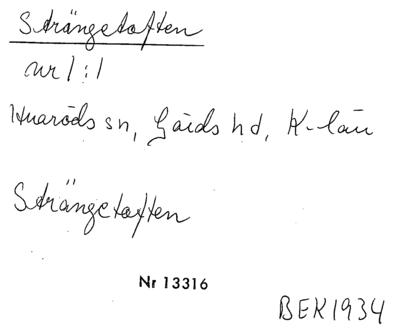 Strängetoften
nr 1:1
Huaröds sn, Gärds hd, K-län
Strängetoften
Nr 13316
BEK 1934